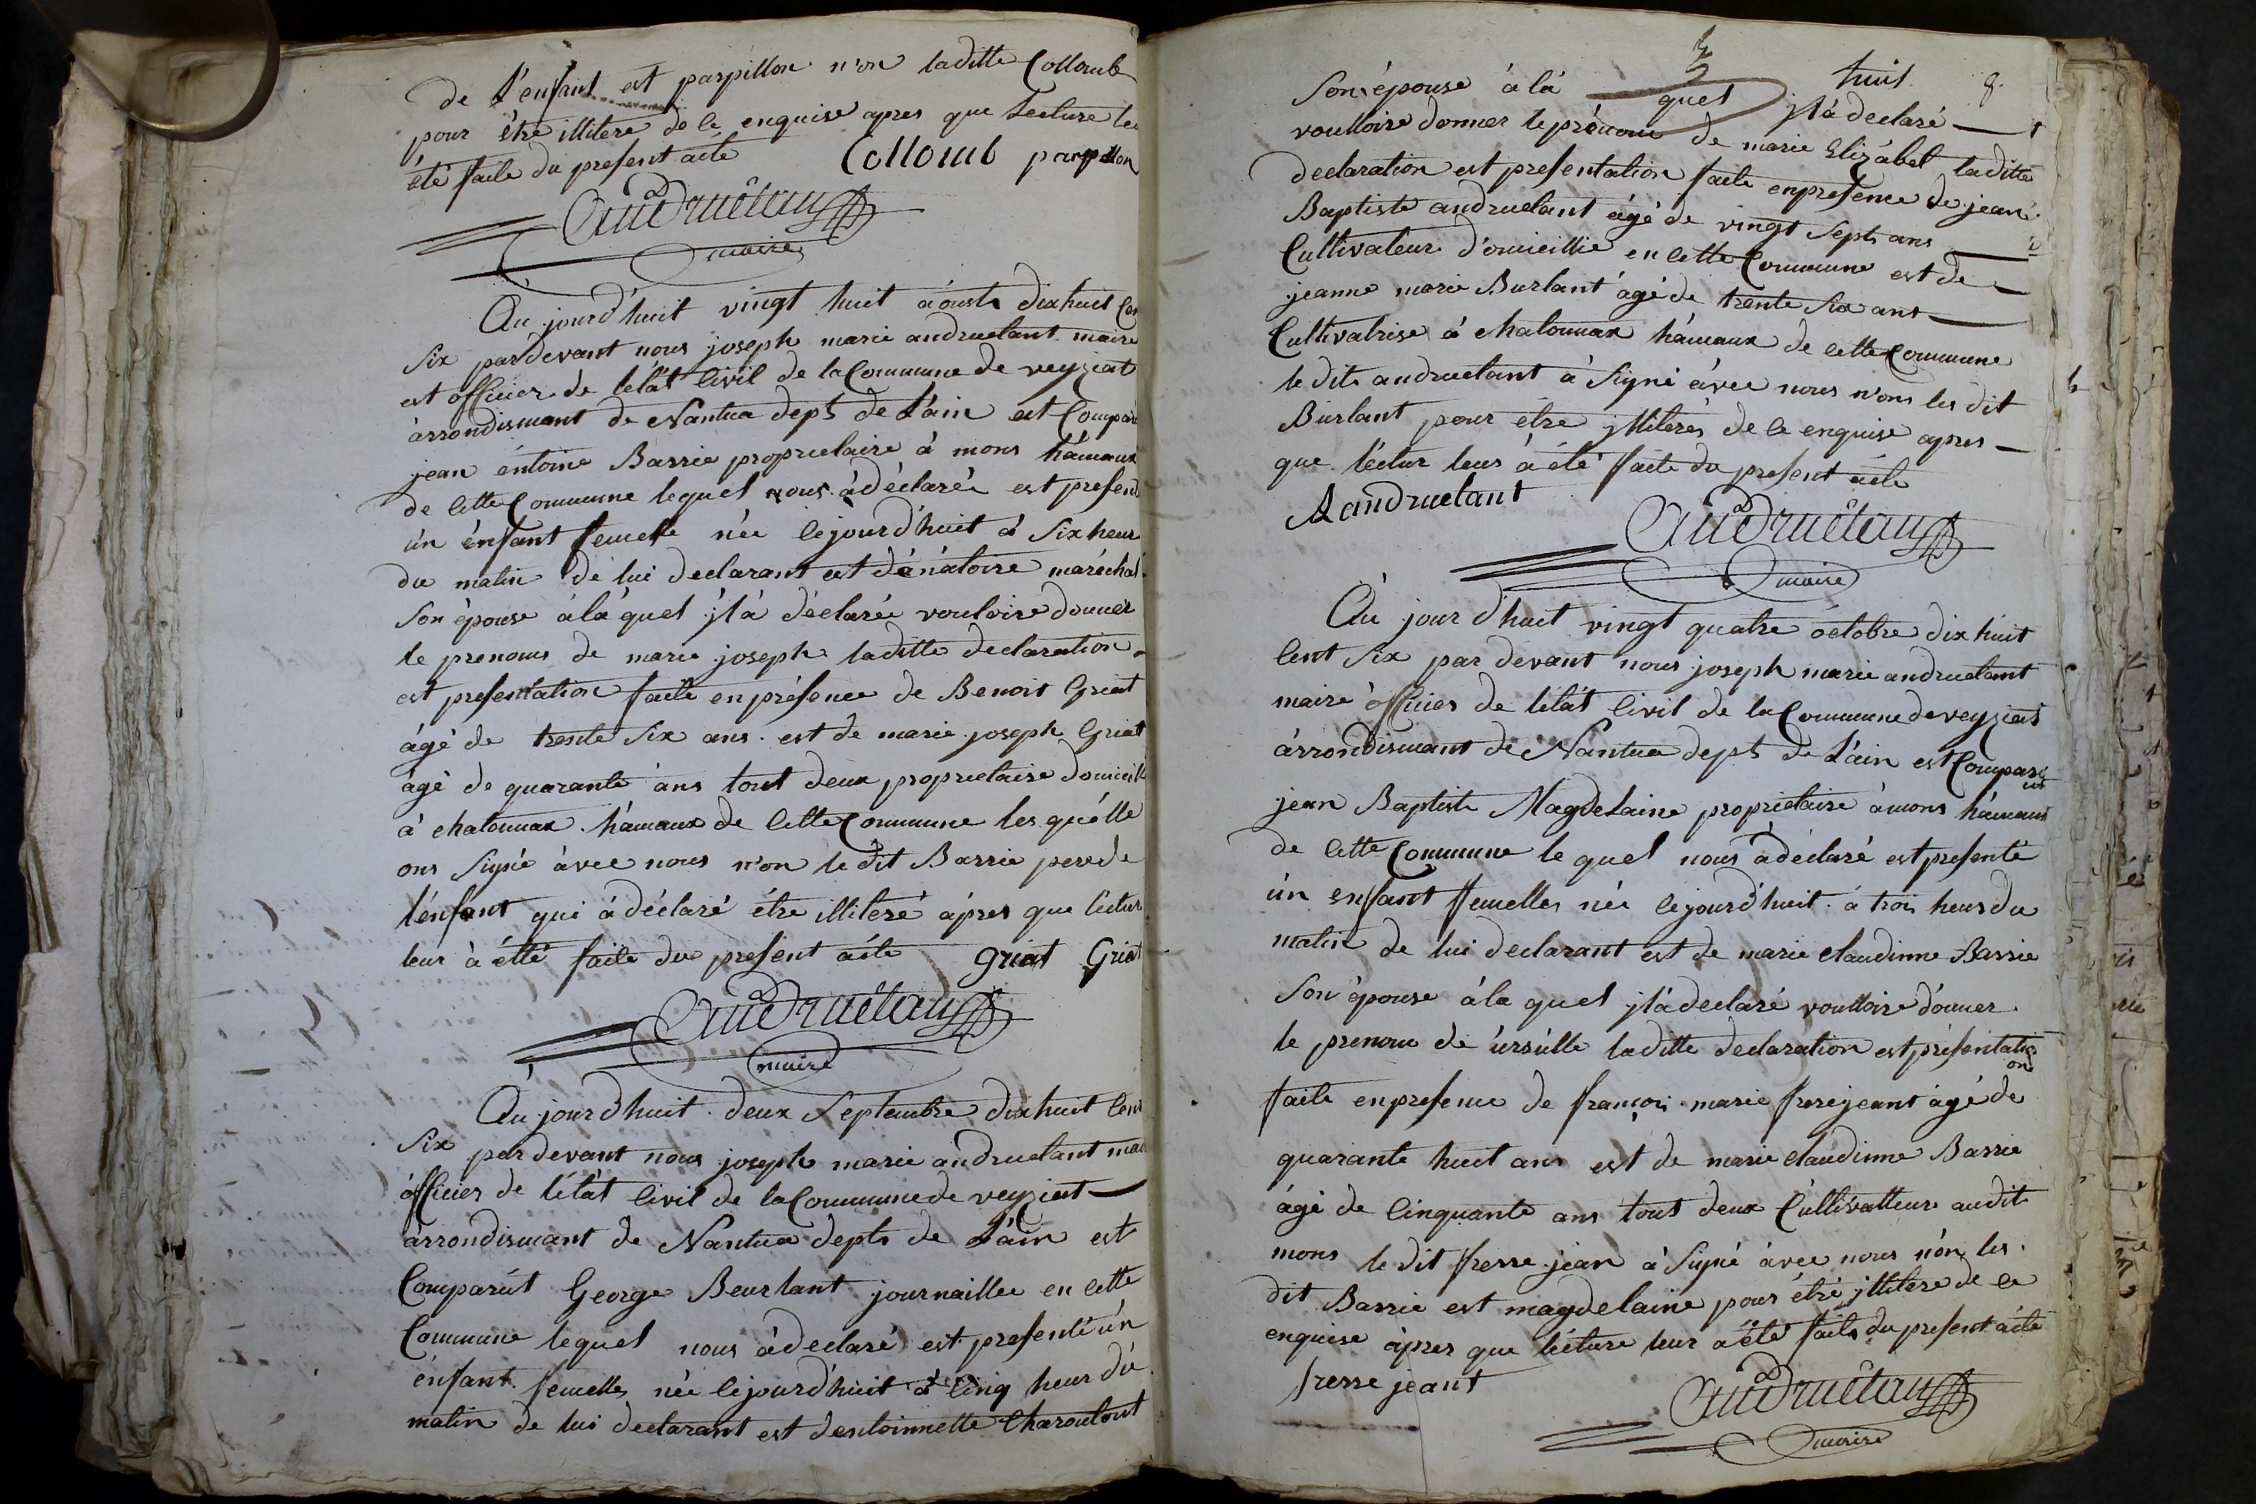 de L'enfant est parpillon n'on laditte Collomb
pour être illitere de le enquise apres que Lecture le
été faite du present acte Collomb parpillon
Andruétan
maire
Au jourd'huit vingt huit àoust dix huit Cen
Six pardevant nous joseph marie andruetant maire
est officier de létàt Civil de la Commune de veyziat
àrrondismant de Nantua dept de L'ain est Compar
jean éntoine Barrie proprietaire à mons hàmeaux
de cette Commune lequel nous àdéclaréé est present
ùn énfant femelle née cejourd'huit à Six heur
du matin de lui declarant est dénatoire maréchal
Son épouse àlà quel jlà déclarée vouloire donner
le prenoms de marie joseph laditte declaration
est presentation faite en présence de Benoit Griat
àgé de trente Six ans est de marie joseph Griat
àgé de quarante ans tout deux proprietaire domicilié
à chatonnax hàmeaux de cette Commune les quélle
ons Signé àvec nous n'on le dit Barrie pere de
l'énfant qui à déclaré étre illiteré àpres que lectur
leur à étté faite du present àcte griat Griat
Andruétan
maire
Au jourd'huit deux Septembre dix huit Cent
Six par devant nous joseph marie andruetant mair
òfficier de létàt Civil de la Commune de veyziat
àrrondismant de Nantua dept de L'ain est
Comparùt George Beurlant journaillee en cette
Commune lequel nous àdeclaré est presenté ùn
énfant femelle née cejourd'huit à Cinq heur du
matin de lui declarant est dentoinnette Charoutout
huit 8.
Son épouse à là quel jlà declaré
voulloire donner le prénom de marie Elizàbet laditte
declaration est presentation faite en presence de jean
Baptiste andruetant àgé de vingt Sept ans
Cultivateur d'omicillie en cette Commune est de
jeanne marie Burlant àgé de trente Six ans
Cultivatrise à chatonnax hàmeaux de cette Commune
le dit andruetant à Signé àvec nous n'ons les dit
Burlant pour étre jlliterés de ce enquise apres
que léctur leur à été faite du present àcte
A andruetant
Andruétan
maire
Au jour d'huit vingt quatre òctobre dix huit
Cent Six par devant nous joseph marie andruetant
maire òfficier de létàt Civil de la Commune de veyziat
àrrondismant de Nantua dept de L'ain est Comparut
jean Baptiste Magdelaine proprietaire à mons hàmeaux
de cette Commune le quel nous àdéclaré est presenté
ùn enfant femelle née cejourd'huit à trois heur du
matin de lui declarant est de marie claudinne Barrie
Son épouse àla quel jlàdeclaré voulloire dónner
le prenom de ùrsùlle laditte déclaration est présentation
faite en presence de françois marie frerejeant àgé de
quarante huit ans est de marie claudinne Barrie
àgé de Cinquante ans tout deux Cùltivatteur audit
mons le dit frerre jean à Signé àvec nous nón les
dit Barrie est magdelaine pour étre jllitere de ce
enquise àpres que lécture leur àété faite du present àcte
frerre jeant
Andruétan
maire